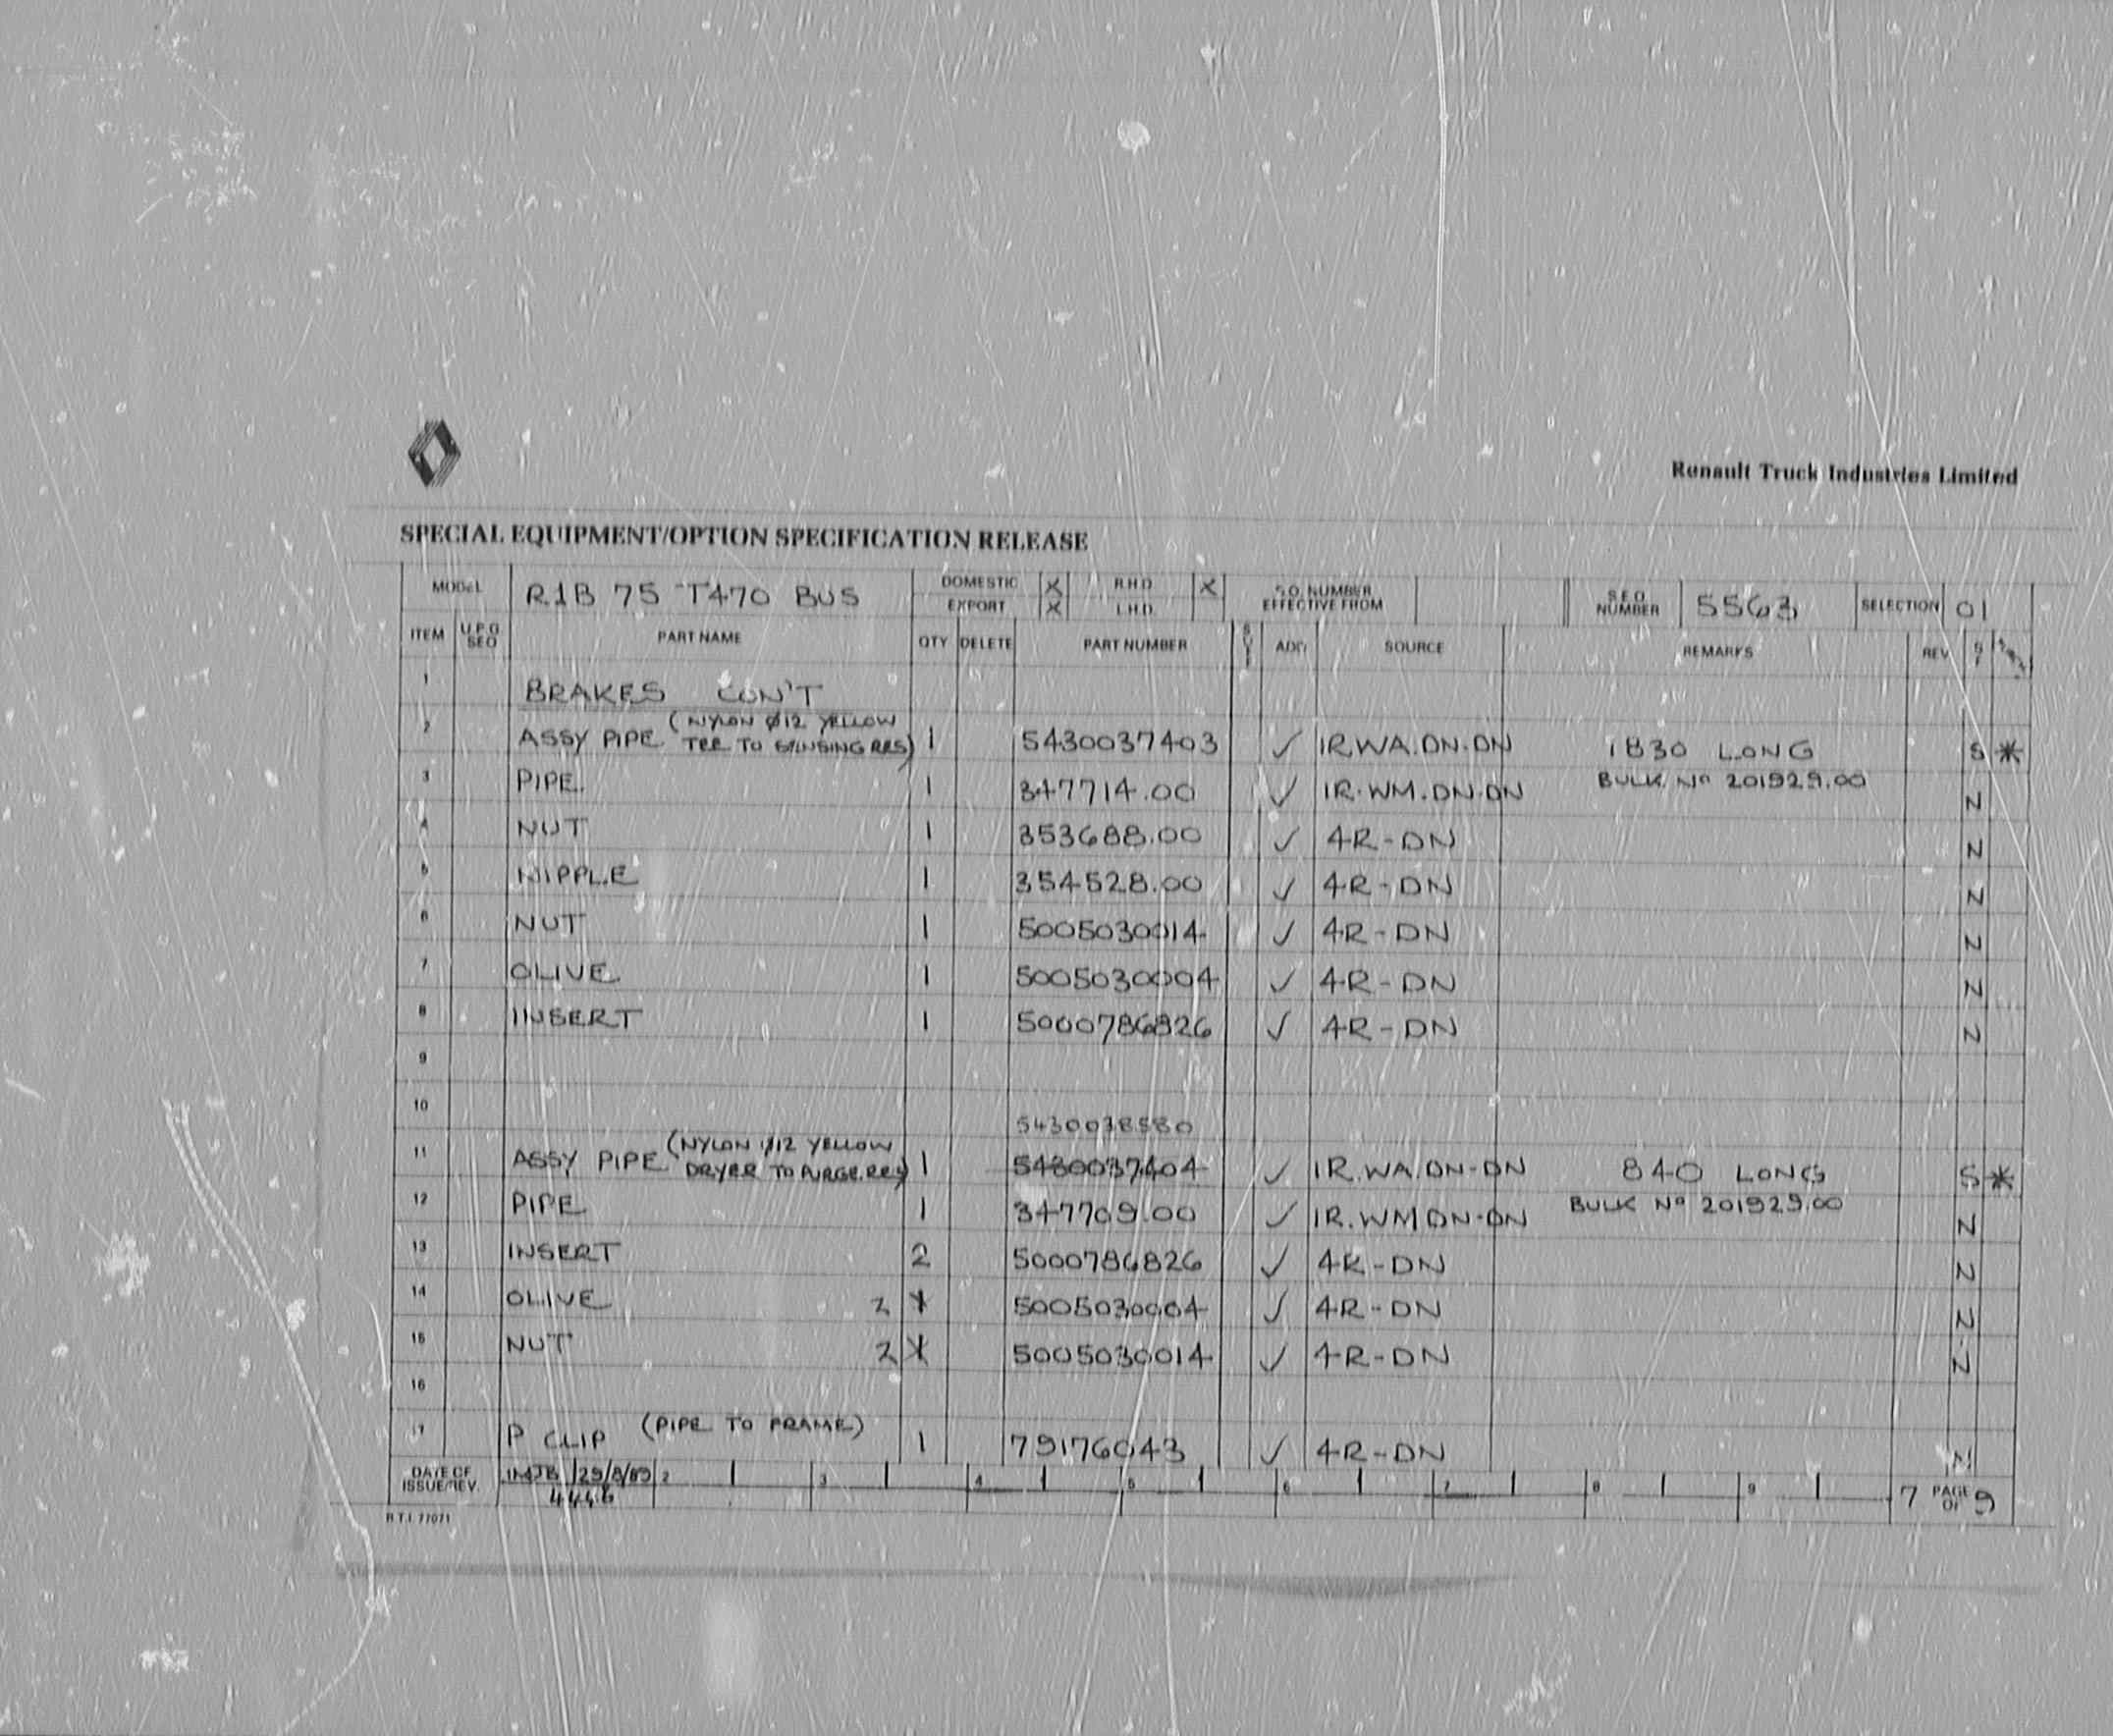 Renault Truck Industries Limited
SPECIAL EQUIPMENT/OPTION SPECIFICATION RELEASE
MODEL R1B 75 T470 BUS DOMESTIC X R.H.D. X S.O. NUMBER EFFECTIVE FROM S.E.O. NUMBER 5563 SELECTION 01
EXPORT X L.H.D.
ITEM U.P.G SEQ PART NAME QTY DELETE PART NUMBER ADD SOURCE REMARKS REV
1 BRAKES CON'T
2 ASSY PIPE (NYLON Ø12 YELLOW TEE TO RES) 1 5430037403 ✓ 1R.WA.DN.DN 1830 LONG S *
3 PIPE. 1 347714.00 ✓ 1R.WM.DN.DN BULK No 201929.00 N
4 NUT 1 353688.00 ✓ 4R-DN N
5 NIPPLE 1 354528.00 ✓ 4R-DN N
6 NUT 1 5005030014 ✓ 4R-DN N
7 OLIVE 1 5005030004 ✓ 4R-DN N
8 INSERT 1 5000786826 ✓ 4R-DN N
9
10
5430038580
11 ASSY PIPE (NYLON Ø12 YELLOW DRYER TO PURGE.RES) 1 5430037404 ✓ 1R.WA.DN-DN 840 LONG S *
12 PIPE 1 347709.00 ✓ 1R.WM DN-DN BULK No 201929.00 N
13 INSERT 2 5000786826 ✓ 4R-DN N
14 OLIVE 2 5005030004 ✓ 4R-DN N
15 NUT 2 5005030014 ✓ 4R-DN N
16
17 P CLIP (PIPE TO FRAME) 1 79176043 ✓ 4R-DN N
DATE OF ISSUE/REV. 1 MJB 29/8/89 2 3 4 5 6 7 8 9 7 PAGE OF 9
4446
R.T.I. 77071